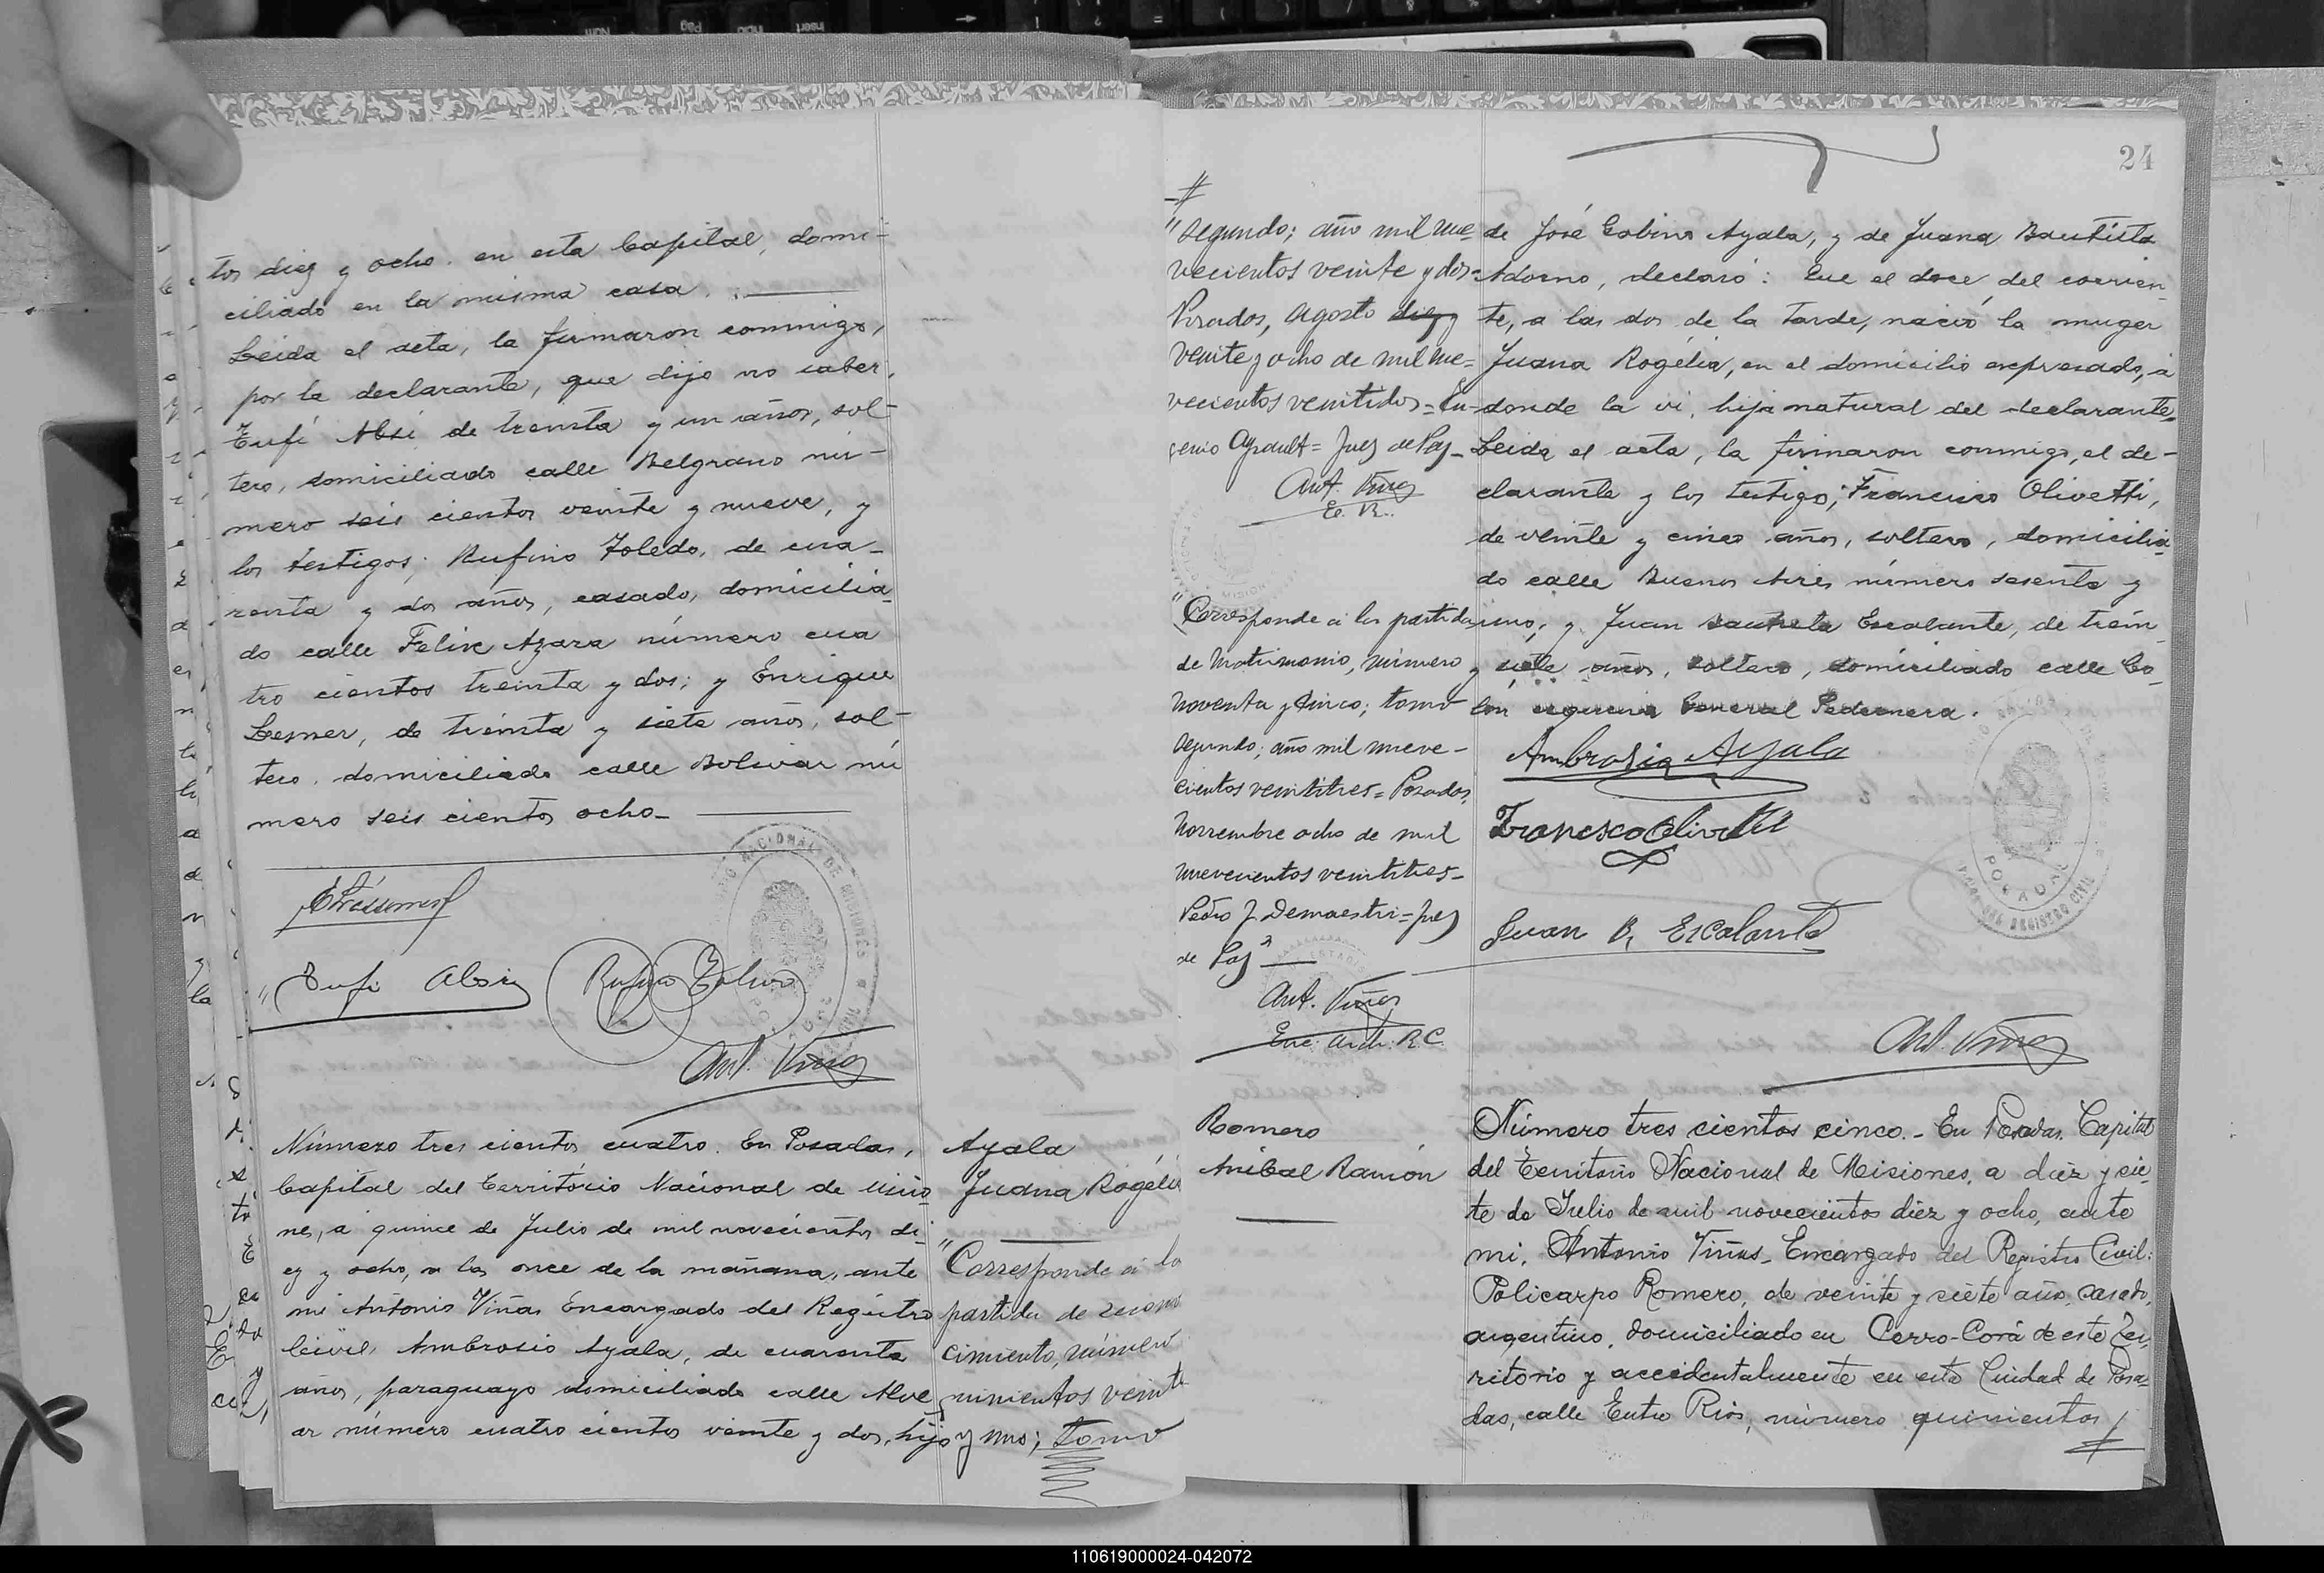 tos diez y ocho. en esta Capital, domi-
ciliado en la misma casa.
Leida el acta, la firmaron conmigo,
por la declarante, que dijo no saber,
Eufi Absi de treinta y un años, sol-
tero, domiciliado calle Belgrano nú-
mero seis cientos veinte y nueve, y
los testigos; Rufino Toledo, de cua-
renta y dos años, casado, domicilia-
do calle Felix Azara número cua
tro cientos treinta y dos; y Enrique
Lesner, de treinta y siete años, sol-
tero. domiciliado calle Bolivar nú
mero seis cientos ocho-
Eufi Absi
Rufino Toledo
Ant. Viñas
Número tres cientos cuatro. En Posadas,
Capital del Territorio Nacional de Misio
nes, a quince de Julio de mil novecientos di-
ez y ocho, a las once de la mañana, ante
mi Antonio Viñas Encargado del Registro
Civil, Ambrosio Ayala, de cuarenta
años, paraguayo domiciliado calle Alve
ar número cuatro cientos veinte y dos, hijo
Ayala
Juana Rogélia
"Corresponde a la
partida de recono
cimiento, número
quinientos veinte
y uno; tomo
24
#
"segundo; año mil nue-
vecientos veinte y dos-
Posadas, Agosto diez y
veinte y ocho de mil nue-
vecientos ventidos= Eu-
genio Agrault= Juez de Paz-
Ant. Viñas
E. R.
"Corresponde a la partida
de Matrimonio, número
noventa y cinco; tomo
segundo; año mil nueve-
cientos veintitres= Posadas,
Noviembre ocho de mil
nuevecientos veintitres-
Pedro J. Demaestri= Juez
de Paz"
Ant. Viñas
Enc. Arch. R.C.
de José Gabino Ayala, y de Juana Bautista
Adorno, declaró: Que el doce del corrien-
te, a las dos de la tarde, nació la muger
Juana Rogélia, en el domicilio expresado, a
donde la vi, hija natural del declarante.
Leida el acta, la firmaron conmigo, el de-
clarante y los testigos; Francisco Olivetti,
de veinte y cinco años, soltero, domicilia-
do calle Buenos Aires número sesenta y
uno; y Juan Bautista Escalante, de trein
y siete años, soltero, domiciliado calle Co-
lón esquina General Pedernera.
Ambrosio Ayala
Francesco Olivetti
Juan B. Escalante
Ant. Viñas
Romero
Anibal Ramón
Número tres cientos cinco.- En Posadas, Capital
del Territorio Nacional de Misiones, a diez y sie-
te de Julio de mil novecientos diez y ocho, ante
mi, Antonio Viñas, Encargado del Registro Civil:
Policarpo Romero, de veinte y siete años, casado,
argentino, domiciliado en Cerro-Corá de este Ter-
ritorio y accidentalmente en esta Ciudad de Posa-
das, calle Entre Rios, número quinientos
110619000024-042072